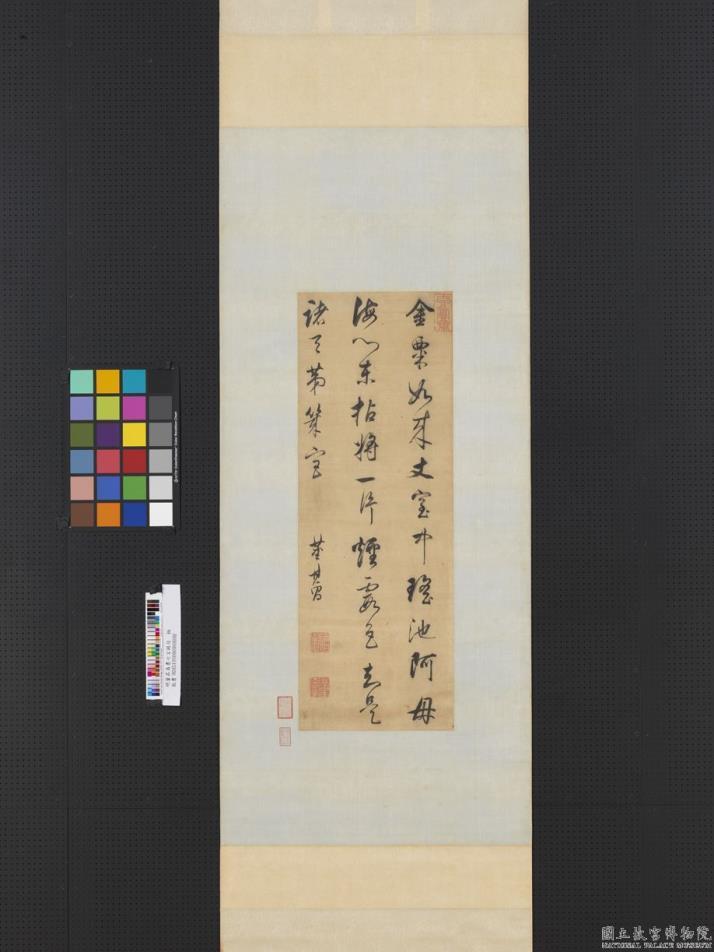 金粟如來丈室中瑤池阿母
海心東拈將一片煙霞色知是
諸天第幾宮
董其昌
國立故宮博物院
NATIONAL PALACE MUSEUM